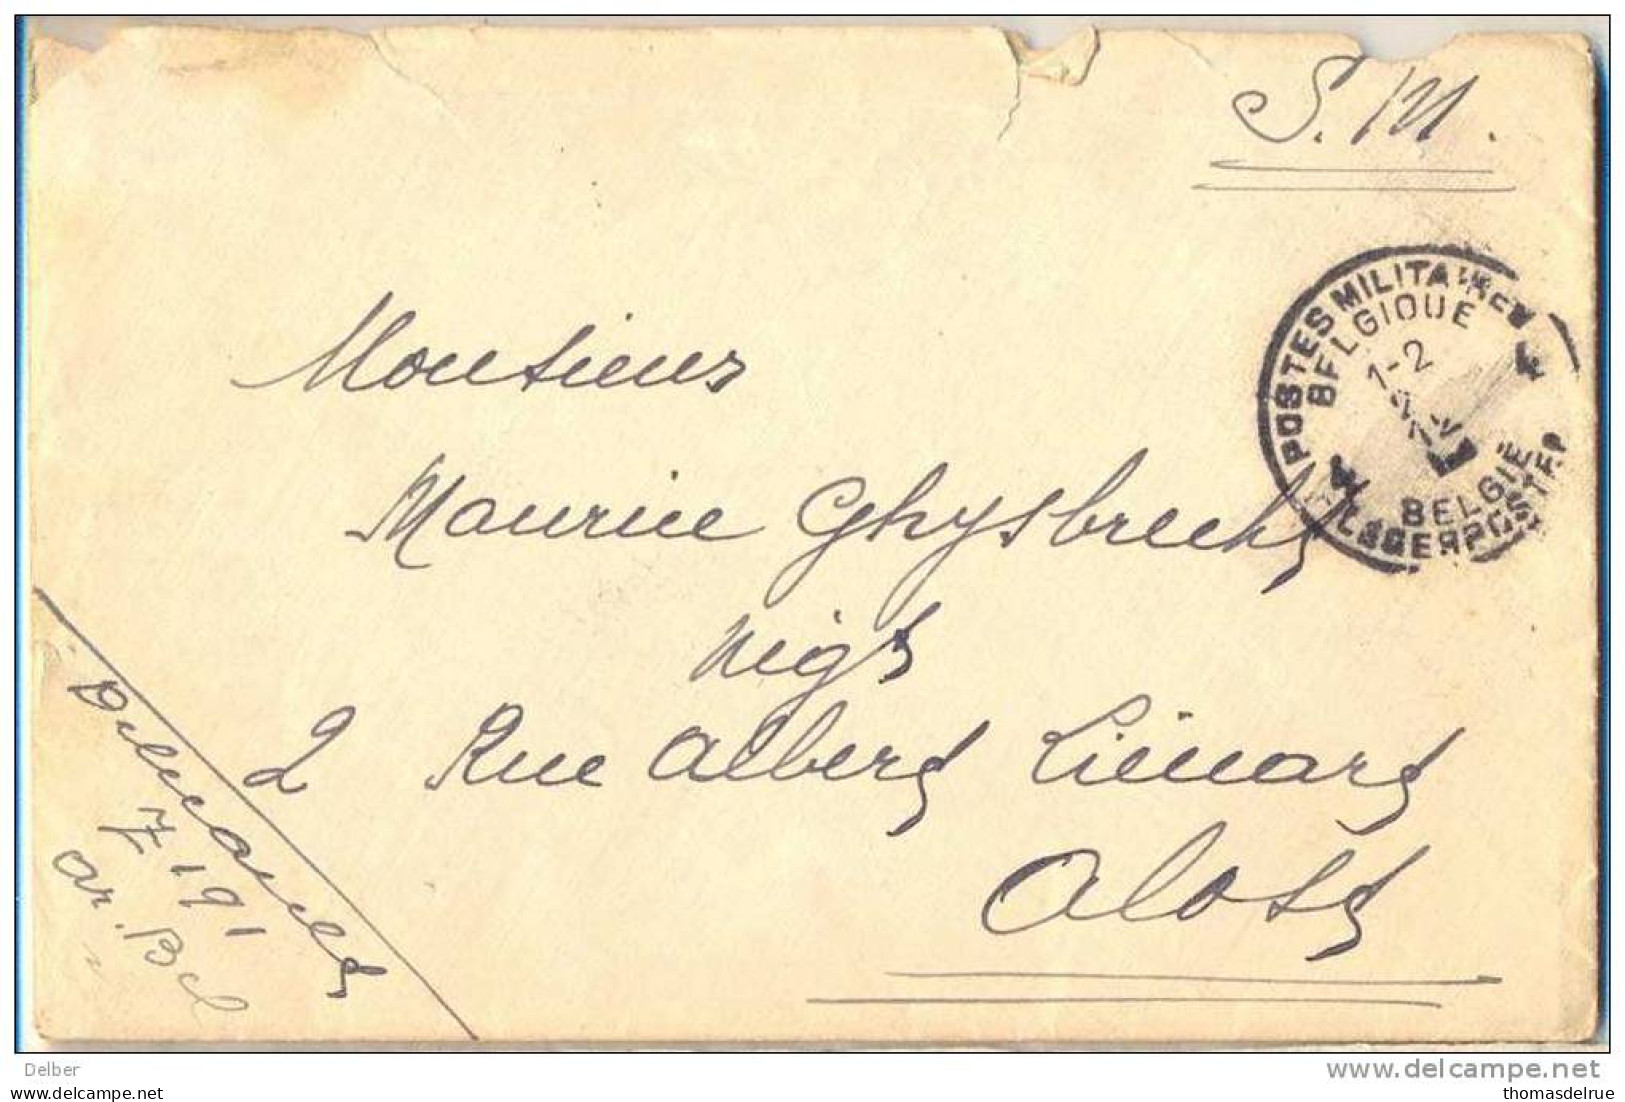 S.M.
POSTES MILITAIRES
BELGIQUE
1-2
BELGIE
LEGERPOSTER
Monsieur
Maurice Ghysbrecht
2 Rue Albert Liénart
Alost
Z 191
Ar. Bel
Delber
delcampe.net
thomasdelrue